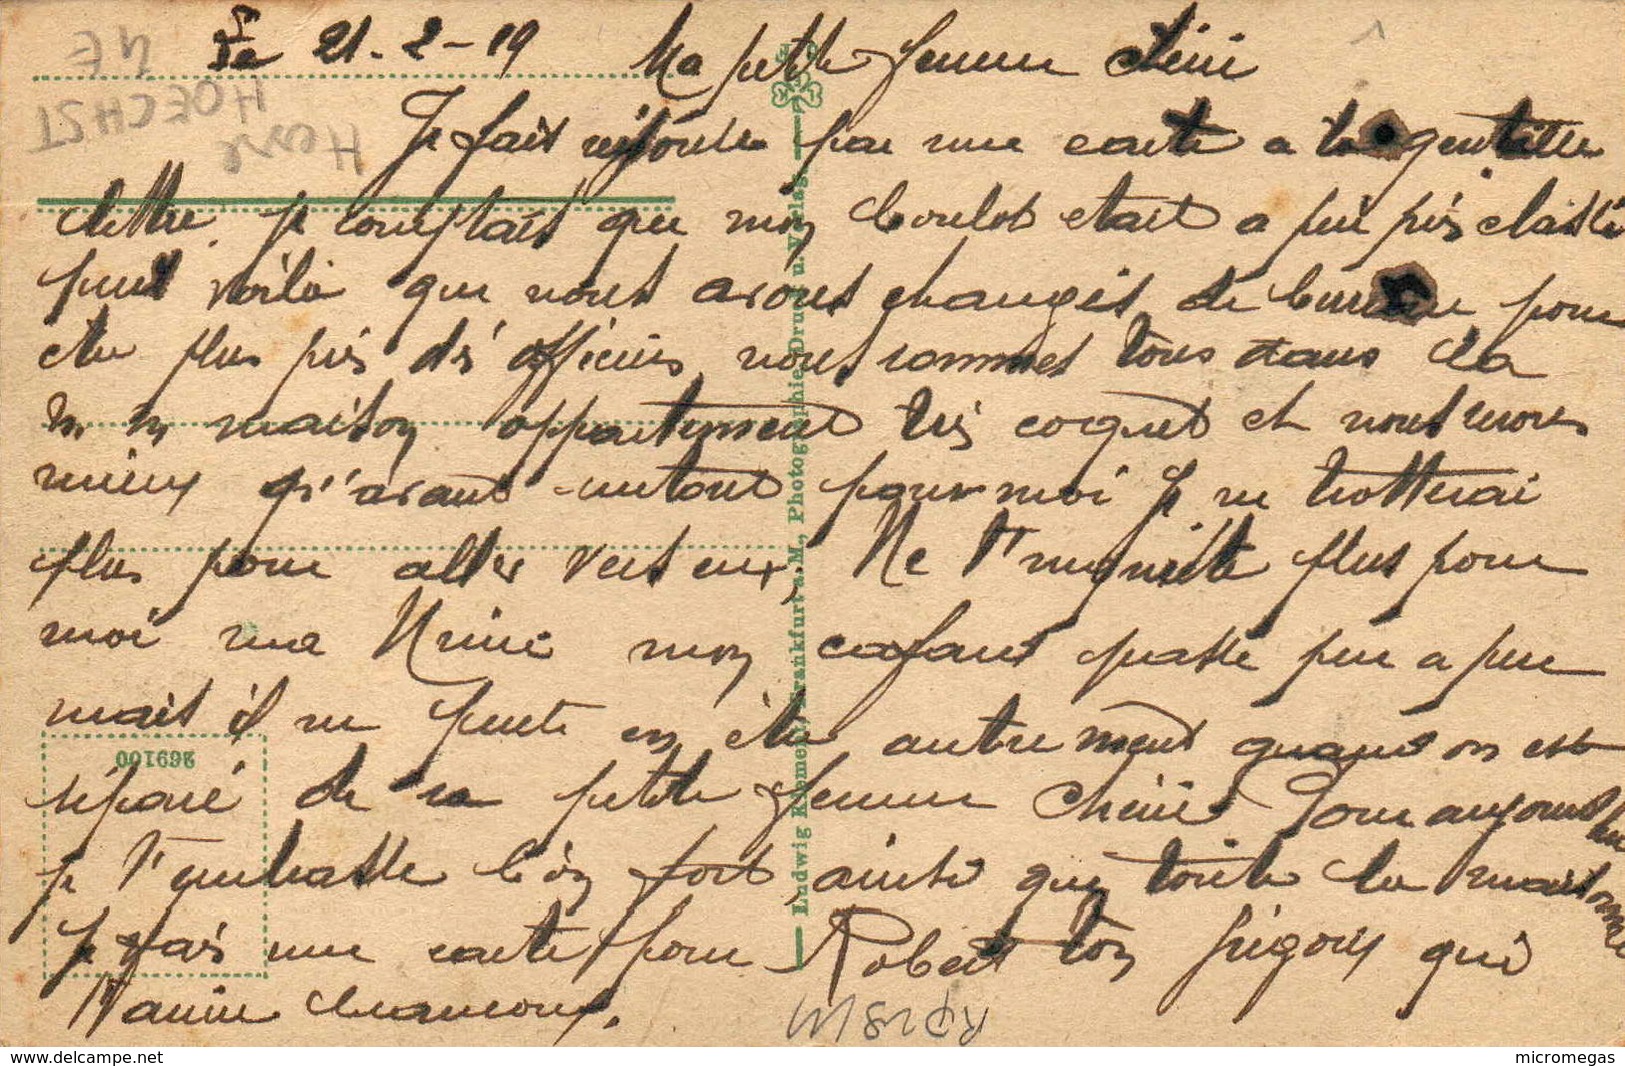 Le 21-2-19 Ma petite femme chérie
Je fait réponse par une carte a ta gentille
lettre. je comptais que mon boulot etait a peu près classé
puis voilà que nous avons changés de bureau pour
etre plus près dés officiers, nous sommes tous dans la
m m maison appartement très coquet et nous serons
mieux qu'avant surtout pour moi Je ne trotterai
plus pour aller vers eux, Ne t'inquiète plus pour
moi ma Ninie mon cafard passe peu a peu
mais il ne peut en être autrement quand on est
séparé de sa petite femme chérie Pour aujourd'hui
je t'embrasse bien fort, ainsi que toute la maisonnée
Je fais une carte pour Robert ton grigou qui
t'aime beaucoup.
Hesse
HOECHST
4E
269100
Ludwig Klement, Frankfurt a. M., Photographie, Druck u. Verlag.
www.delcampe.net
micromegas